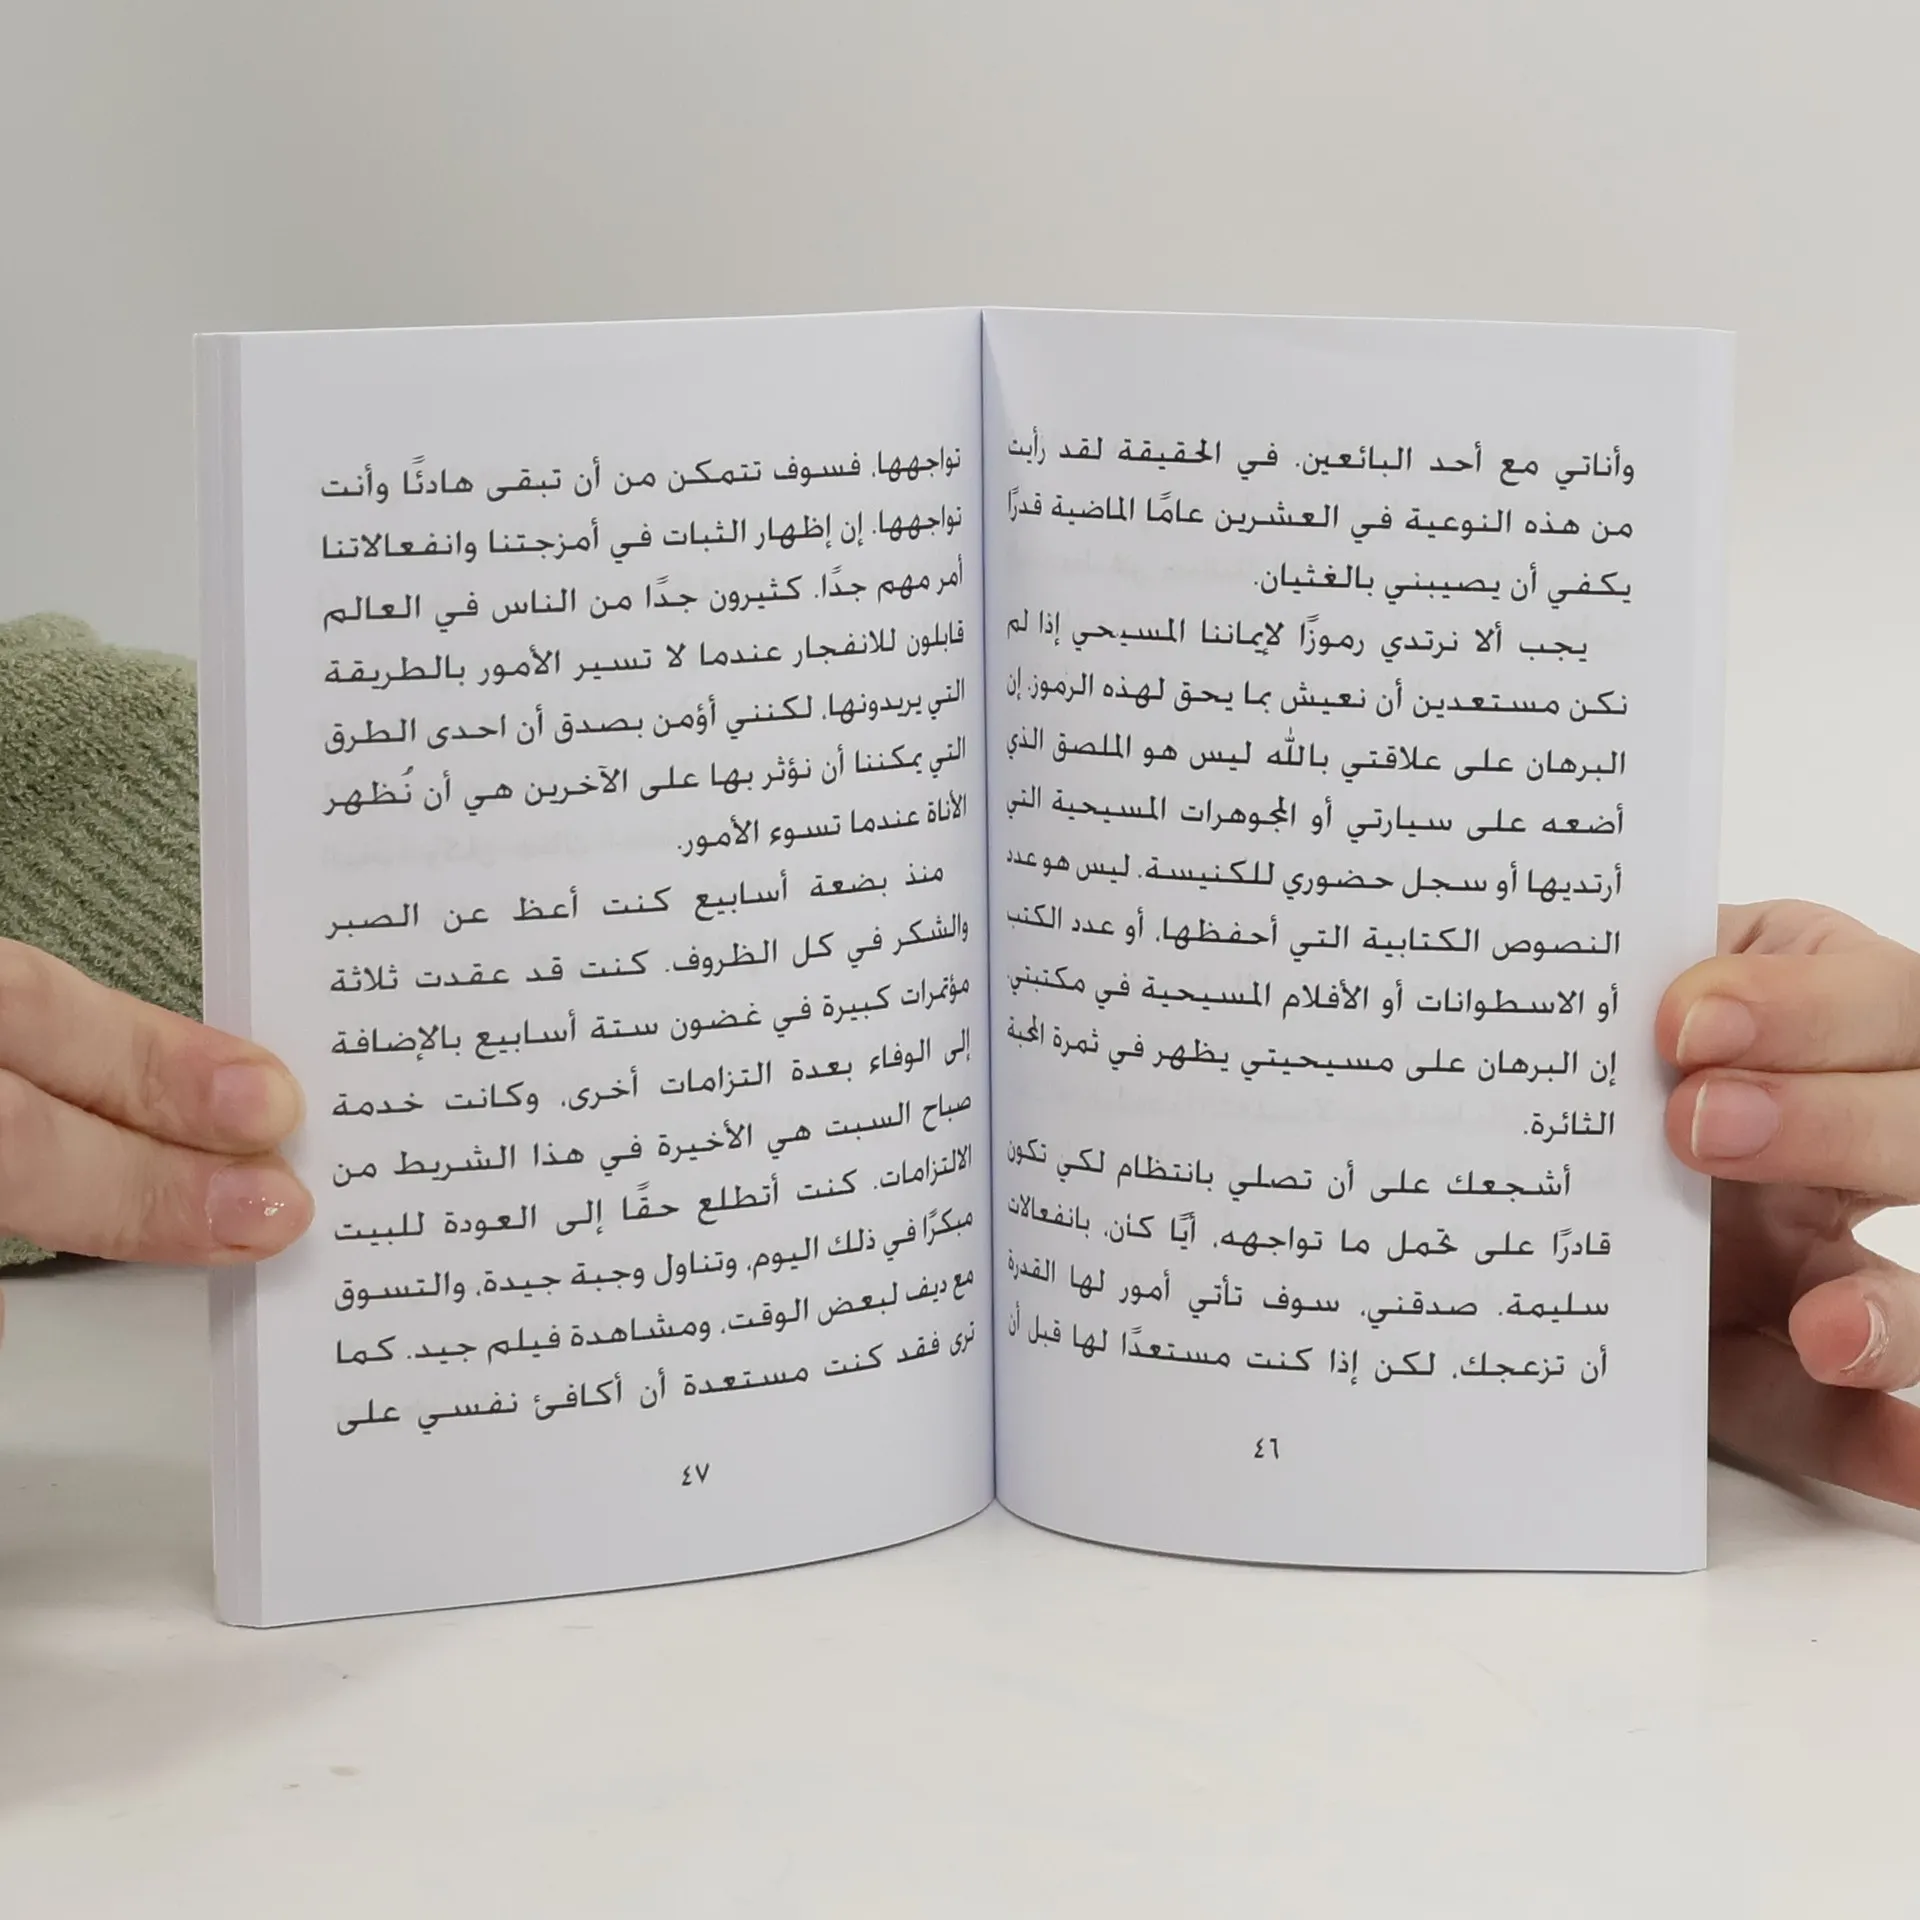 وأناتي مع أحد البائعين. في الحقيقة لقد رأيت
من هذه النوعية في العشرين عامًا الماضية قدرًا
يكفي أن يصيبني بالغثيان.
يجب ألا نرتدي رموزًا لإيماننا المسيحي إذا لم
نكن مستعدين أن نعيش بما يحق لهذه الرموز. إن
البرهان على علاقتي بالله ليس هو الملصق الذي
أضعه على سيارتي أو المجوهرات المسيحية التي
أرتديها أو سجل حضوري للكنيسة. ليس هو عدد
النصوص الكتابية التي أحفظها، أو عدد الكتب
أو الاسطوانات أو الأفلام المسيحية في مكتبتي.
إن البرهان على مسيحيتي يظهر في ثمرة المحبة
الثائرة.
أشجعك على أن تصلي بانتظام لكي تكون
قادرًا على تحمل ما تواجهه، أيًا كان، بانفعالات
سليمة. صدقني، سوف تأتي أمور لها القدرة
أن تزعجك، لكن إذا كنت مستعدًا لها قبل أن
٤٦
تواجهها، فسوف تتمكن من أن تبقى هادئًا وأنت
تواجهها. إن إظهار الثبات في أمزجتنا وانفعالاتنا
أمر مهم جدًا. كثيرون جدًا من الناس في العالم
قابلون للانفجار عندما لا تسير الأمور بالطريقة
التي يريدونها، لكنني أؤمن بصدق أن احدى الطرق
التي يمكننا أن نؤثر بها على الآخرين هي أن نُظهر
الأناة عندما تسوء الأمور.
منذ بضعة أسابيع كنت أعظ عن الصبر
والشكر في كل الظروف. كنت قد عقدت ثلاثة
مؤتمرات كبيرة في غضون ستة أسابيع بالإضافة
إلى الوفاء بعدة التزامات أخرى، وكانت خدمة
صباح السبت هي الأخيرة في هذا الشريط من
الالتزامات. كنت أتطلع حقًا إلى العودة للبيت
مبكرًا في ذلك اليوم، وتناول وجبة جيدة، والتسوق
مع ديف لبعض الوقت، ومشاهدة فيلم جيد. كما
ترى فقد كنت مستعدة أن أكافئ نفسي على
٤٧